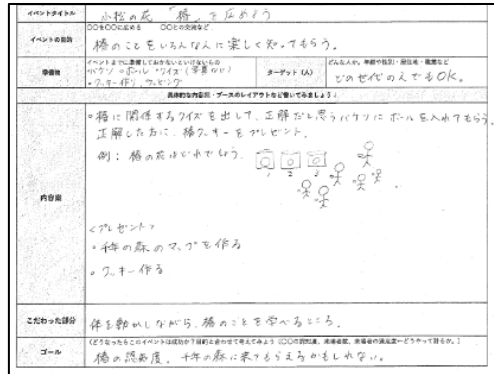 イベントタイトル 小松の花「椿」を広めよう
イベントの目的 〇〇を〇〇に広める 〇〇との交流など
椿のことをいろんな人に楽しく知ってもらう。
準備物 イベントまでに準備しておかないといけないもの
バケツ・ボール・クイズ(写真など)
・クッキー作り、ラッピング
ターゲット(人) どんな人か、年齢や性別・居住地・職業など
どの世代の人でもOK。
具体的な内容図・ブースのレイアウトなど書いてみましょう!
内容案
・椿に関係するクイズを出して、正解だと思うバケツにボールを入れてもらう。
正解した方に、椿クッキーをプレゼント。
例:椿の花はどれでしょう。
1 2 3
<プレゼント>
・千年の森のマップを作る
・クッキー作る
こだわった部分 体を動かしながら、椿のことを学べるところ。
ゴール (どうなったらこのイベントは成功か?目的と合わせて考えてみよう
椿の認知度、千年の森に来てもらえるかもしれない。